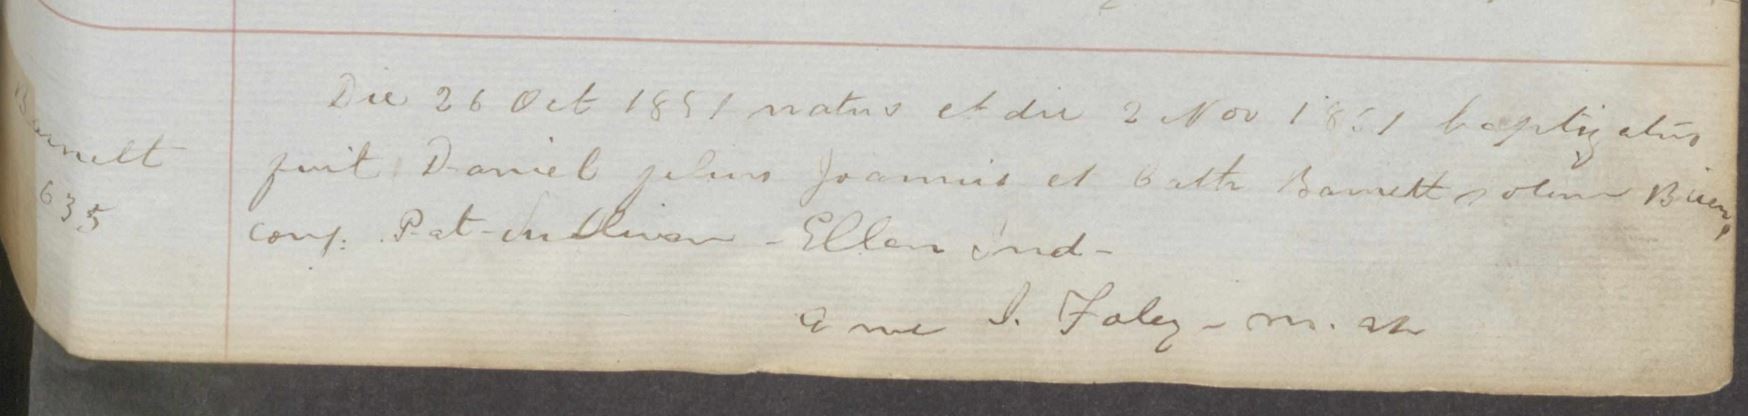 Die 26 Oct 1851 natus et die 2 Nov 1851 baptizatus
Barnett
fuit Daniel filius Joannis et Cath Barnett olim Brien,
635
conj. Pat Sullivan - Ellen
a me J. Foley - m. ap